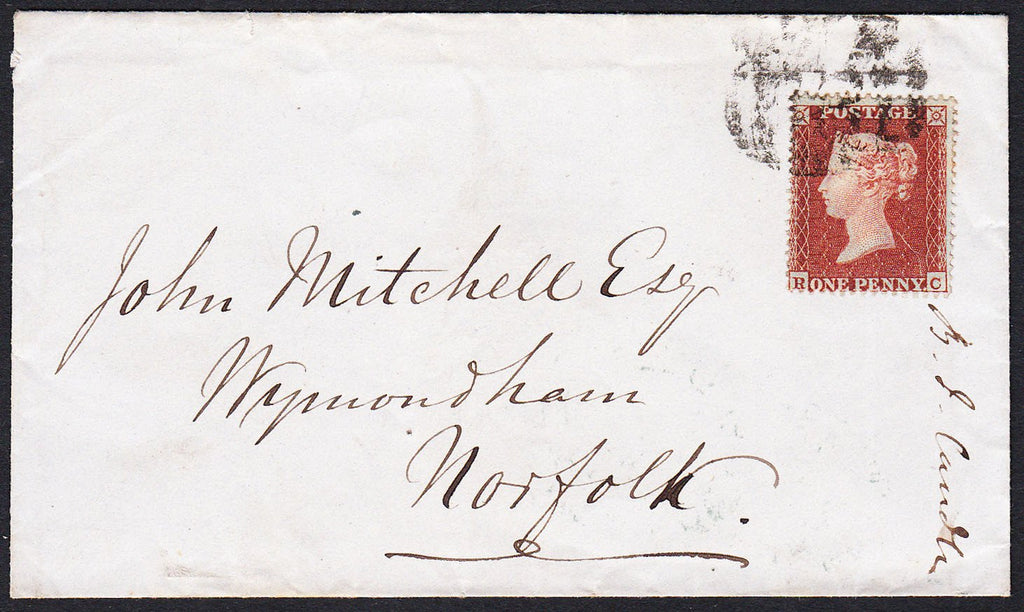 POSTAGE
R ONE PENNY C
John Mitchell Esq
Wymondham
Norfolk.